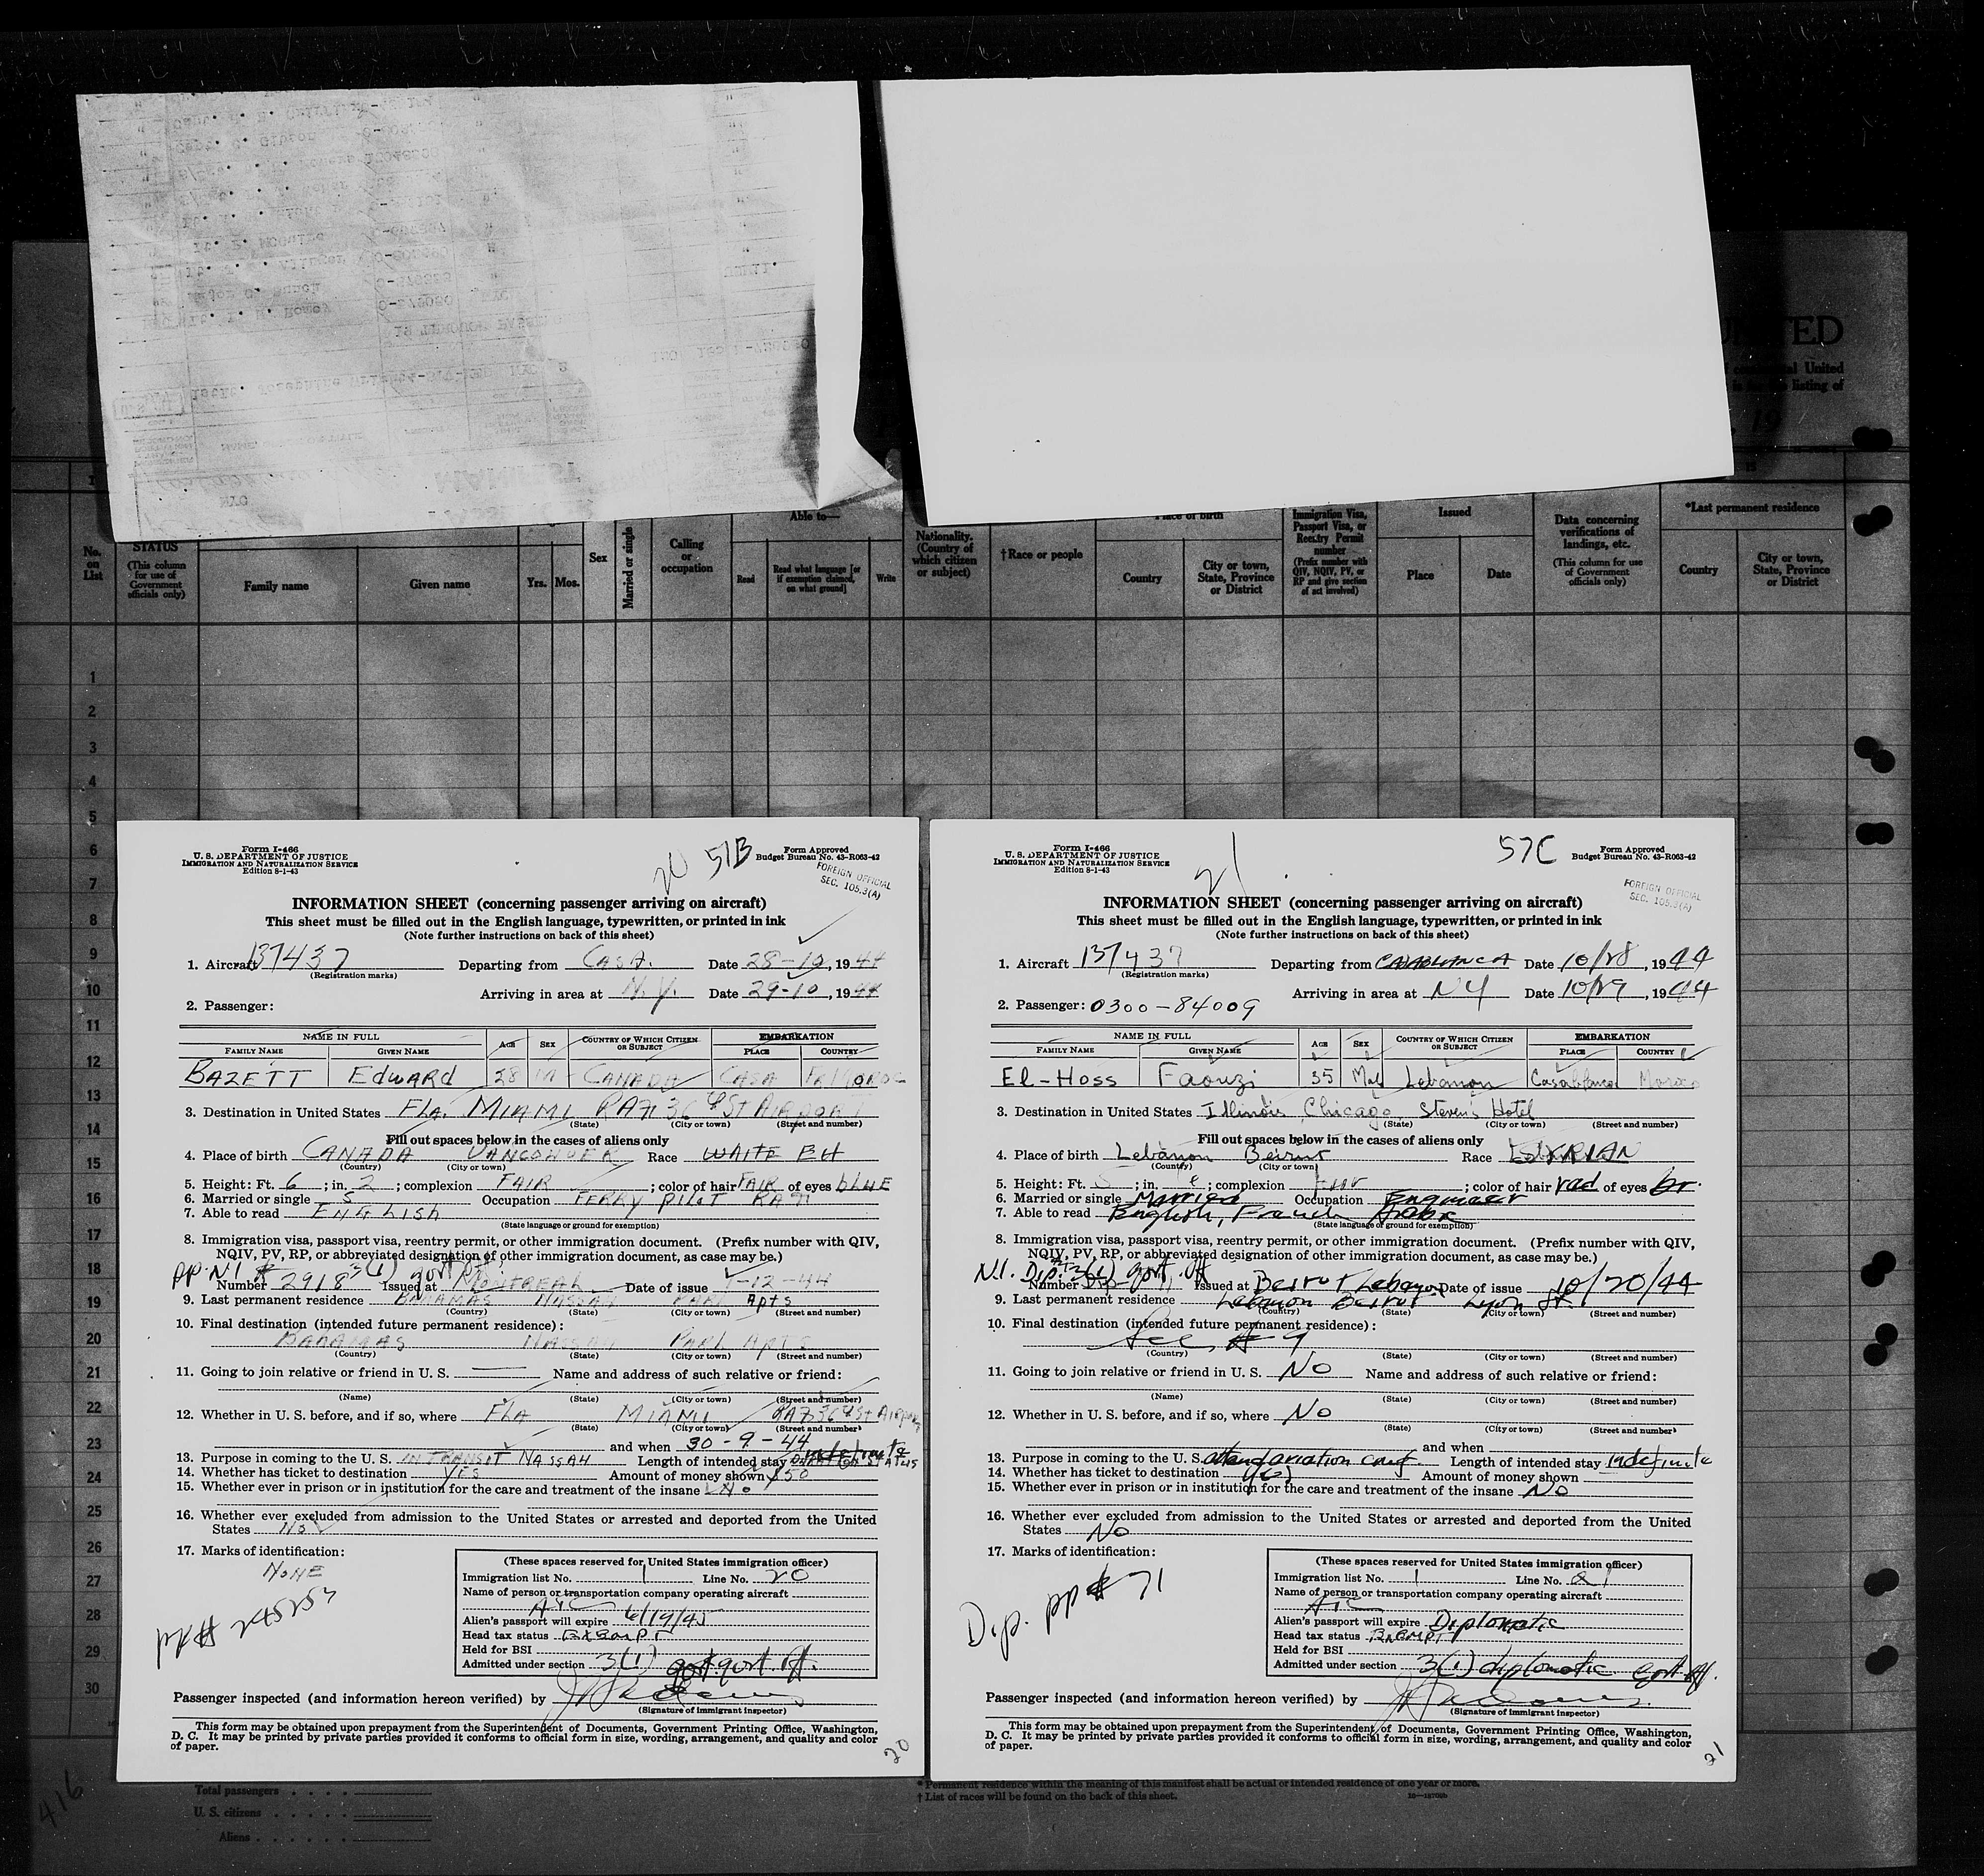 UNITED
United
listing of
, 19
No.
on
List
STATUS
(This column
for use of
Government
officials only)
Family name
Given name
Yrs.
Mos.
Sex
Married or single
Calling
or
occupation
Able to—
Read
Read what language [or
if exemption claimed,
on what ground]
Write
Nationality.
(Country of
which citizen
or subject)
†Race or people
Place of birth
Country
City or town,
State, Province
or District
Immigration Visa,
Passport Visa, or
Reentry Permit
number
(Prefix number with
QIV, NQIV, PV, or
RP and give section
of act involved)
Issued
Place
Date
Data concerning
verifications of
landings, etc.
(This column for use
of Government
officials only)
*Last permanent residence
Country
City or town,
State, Province
or District
1
2
3
4
5
6
7
8
9
10
11
12
13
14
15
16
17
18
19
20
21
22
23
24
25
26
27
28
29
30
Form I-466
U. S. DEPARTMENT OF JUSTICE
IMMIGRATION AND NATURALIZATION SERVICE
Edition 8-1-43
20 51B
Form Approved
Budget Bureau No. 43-R063-42
FOREIGN OFFICIAL
SEC. 105.3(A)
INFORMATION SHEET (concerning passenger arriving on aircraft)
This sheet must be filled out in the English language, typewritten, or printed in ink
(Note further instructions on back of this sheet)
1. Aircraft 137437 Departing from CASA. Date 28-10, 1944
(Registration marks)
Arriving in area at N.Y. Date 29-10, 1944
2. Passenger:
NAME IN FULL AGE SEX COUNTRY OF WHICH CITIZEN OR SUBJECT EMBARKATION
FAMILY NAME GIVEN NAME PLACE COUNTRY
BAZETT EDWARD 28 M CANADA CASA FR MOROC
3. Destination in United States FLA. MIAMI RA71 36th ST AIRPORT
(State) (City or town) (Street and number)
Fill out spaces below in the cases of aliens only
4. Place of birth CANADA VANCOUVER Race WHITE EH
(Country) (City or town)
5. Height: Ft. 6; in. 2; complexion FAIR; color of hair FAIR of eyes bLUE
6. Married or single S Occupation FERRY PILOT RA71
7. Able to read ENGLISH
(State language or ground for exemption)
8. Immigration visa, passport visa, reentry permit, or other immigration document. (Prefix number with QIV,
NQIV, PV, RP, or abbreviated designation of other immigration document, as case may be.)
PP. N.I. 3(1) govt off.
Number # 2918 Issued at MONTREAL Date of issue -12-44
9. Last permanent residence BAHAMAS NASSAU PARL Apts
(Country) (State) (City or town) (Street and number)
10. Final destination (intended future permanent residence):
BAHAMAS NASSAU PARL APTS
(Country) (State) (City or town) (Street and number)
11. Going to join relative or friend in U. S. — Name and address of such relative or friend:
(Name) (State) (City or town) (Street and number)
12. Whether in U. S. before, and if so, where FLA MIAMI RA7 36th St Airport
(State) (City or town) (Street and number)
and when 30-9-44
13. Purpose in coming to the U. S. IN TRANSIT NASSAU Length of intended stay indefinite
14. Whether has ticket to destination YES Amount of money shown $50
15. Whether ever in prison or in institution for the care and treatment of the insane No
16. Whether ever excluded from admission to the United States or arrested and deported from the United
States No
17. Marks of identification:
NONE
(These spaces reserved for United States immigration officer)
Immigration list No. 1 Line No. 20
Name of person or transportation company operating aircraft
ATC
Alien's passport will expire 6/19/45
Head tax status Exempt
Held for BSI
Admitted under section 3(1) govt off.
Passenger inspected (and information hereon verified) by
(Signature of immigrant inspector)
This form may be obtained upon prepayment from the Superintendent of Documents, Government Printing Office, Washington,
D. C. It may be printed by private parties provided it conforms to official form in size, wording, arrangement, and quality and color
of paper.
20
Form I-466
U. S. DEPARTMENT OF JUSTICE
IMMIGRATION AND NATURALIZATION SERVICE
Edition 8-1-43
21
57C
Form Approved
Budget Bureau No. 43-R063-42
FOREIGN OFFICIAL
SEC. 105.3(A)
INFORMATION SHEET (concerning passenger arriving on aircraft)
This sheet must be filled out in the English language, typewritten, or printed in ink
(Note further instructions on back of this sheet)
1. Aircraft 137437 Departing from CASABLANCA Date 10/28, 1944
(Registration marks)
Arriving in area at NY Date 10/29, 1944
2. Passenger: 0300-84009
NAME IN FULL AGE SEX COUNTRY OF WHICH CITIZEN OR SUBJECT EMBARKATION
FAMILY NAME GIVEN NAME PLACE COUNTRY
El-Hoss Faouzi 35 Mal Lebanon Casablanca Morocco
3. Destination in United States Illinois Chicago, Steven's Hotel
(State) (City or town) (Street and number)
Fill out spaces below in the cases of aliens only
4. Place of birth Lebanon Beirut Race
(Country) (City or town)
5. Height: Ft. 5; in.; complexion fair; color of hair red of eyes br.
6. Married or single Married Occupation Engineer
7. Able to read English, French Arabic
(State language or ground for exemption)
8. Immigration visa, passport visa, reentry permit, or other immigration document. (Prefix number with QIV,
NQIV, PV, RP, or abbreviated designation of other immigration document, as case may be.)
N.I. Dip. 3(1) govt. off
Number Issued at Beirut Lebanon Date of issue 10/20/44
9. Last permanent residence Lebanon Beirut Lyon St.
(Country) (State) (City or town) (Street and number)
10. Final destination (intended future permanent residence):
See # 9
(Country) (State) (City or town) (Street and number)
11. Going to join relative or friend in U. S. No Name and address of such relative or friend:
(Name) (State) (City or town) (Street and number)
12. Whether in U. S. before, and if so, where No
(State) (City or town) (Street and number)
and when
13. Purpose in coming to the U. S. attend aviation conf. Length of intended stay indefinite
14. Whether has ticket to destination yes Amount of money shown
15. Whether ever in prison or in institution for the care and treatment of the insane No
16. Whether ever excluded from admission to the United States or arrested and deported from the United
States No
17. Marks of identification:
Dip. pp # 71
(These spaces reserved for United States immigration officer)
Immigration list No. 1 Line No. 21
Name of person or transportation company operating aircraft
ATC
Alien's passport will expire Diplomatic
Head tax status Exempt
Held for BSI
Admitted under section 3(1) diplomatic govt off.
Passenger inspected (and information hereon verified) by
(Signature of immigrant inspector)
This form may be obtained upon prepayment from the Superintendent of Documents, Government Printing Office, Washington,
D. C. It may be printed by private parties provided it conforms to official form in size, wording, arrangement, and quality and color
of paper.
21
Total passengers
U. S. citizens
Aliens
416
* Permanent residence within the meaning of this manifest shall be actual or intended residence of one year or more.
† List of races will be found on the back of this sheet.